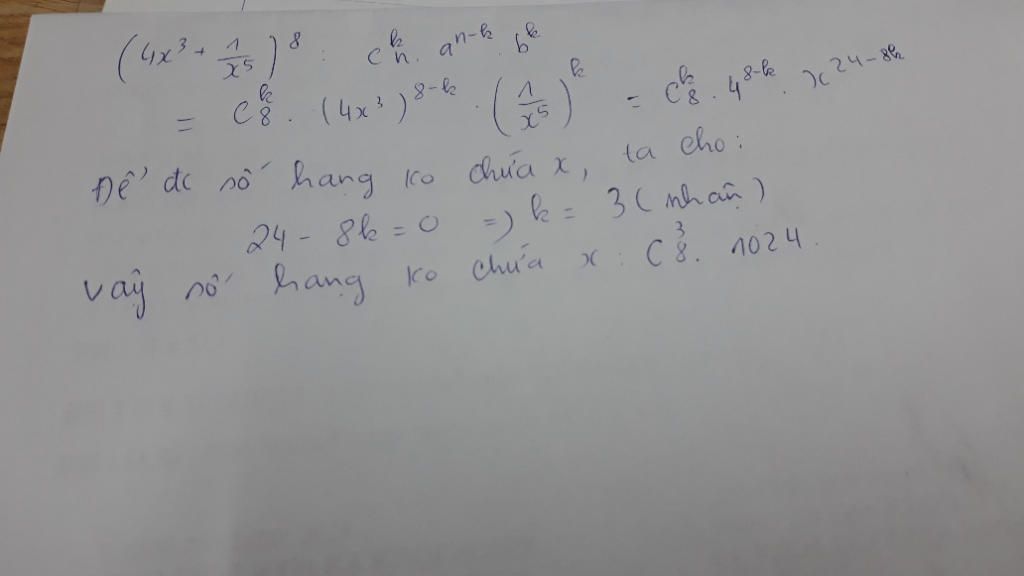 (4x³ + 1/x⁵)⁸ : Cₙᵏ . aⁿ⁻ᵏ . bᵏ
= C₈ᵏ . (4x³)⁸⁻ᵏ . (1/x⁵)ᵏ = C₈ᵏ . 4⁸⁻ᵏ . x²⁴⁻⁸ᵏ
Để đc số hạng ko chứa x, ta cho:
24 - 8k = 0 => k = 3 (nhận)
Vậy số hạng ko chứa x : C₈³ . 1024.